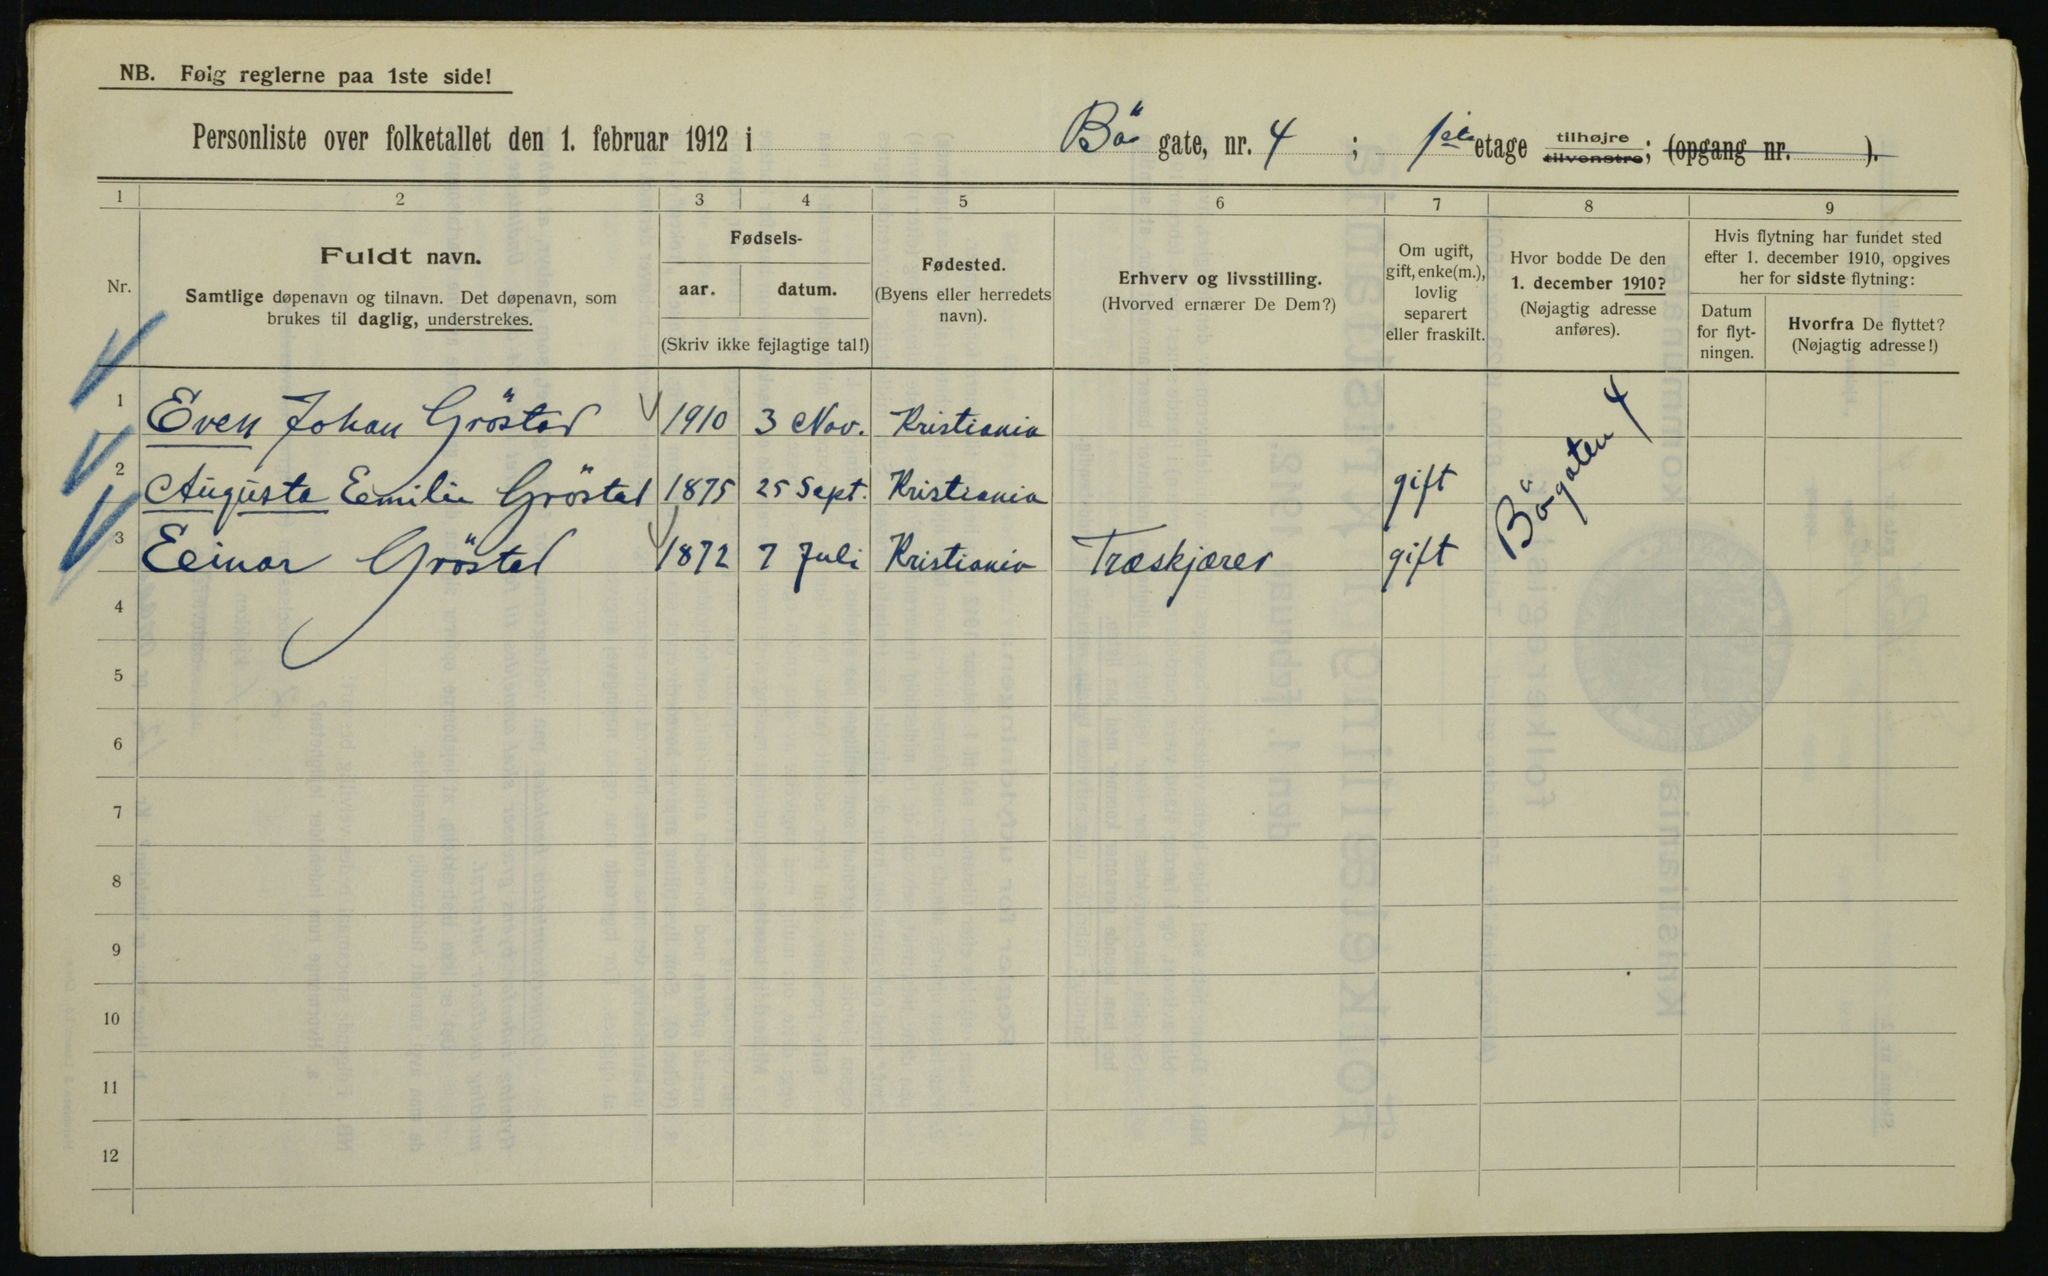 NB. Følg reglerne paa 1ste side!
Personliste over folketallet den 1. februar 1912 i Bö gate, nr. 4 ; 1ste etage tilhøjre tilvenstre; (opgang nr. ).
1 2 3 4 5 6 7 8 9
Nr.
Fuldt navn.
Samtlige døpenavn og tilnavn. Det døpenavn, som
brukes til daglig, understrekes.
Fødsels-
aar. datum.
(Skriv ikke fejlagtige tal!)
Fødested.
(Byens eller herredets
navn).
Erhverv og livsstilling.
(Hvorved ernærer De Dem?)
Om ugift,
gift, enke(m.),
lovlig
separert
eller fraskilt.
Hvor bodde De den
1. december 1910?
(Nøjagtig adresse
anføres).
Hvis flytning har fundet sted
efter 1. december 1910, opgives
her for sidste flytning:
Datum
for flyt-
ningen.
Hvorfra De flyttet?
(Nøjagtig adresse!)
1 Even Johan Gröstad 1910 3 Nov. Kristiania
2 Augusta Emilie Gröstad 1875 25 Sept. Kristiania gift
3 Einar Gröstad 1872 7 Juli Kristiania Træskjærer gift
Bögaten 4
4
5
6
7
8
9
10
11
12